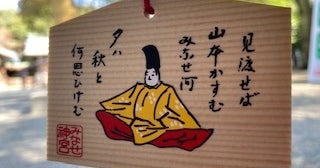 見渡せば
山本かすむ
みなせ河
夕ハ
秋と
何思ひけむ
みなせ
神宮